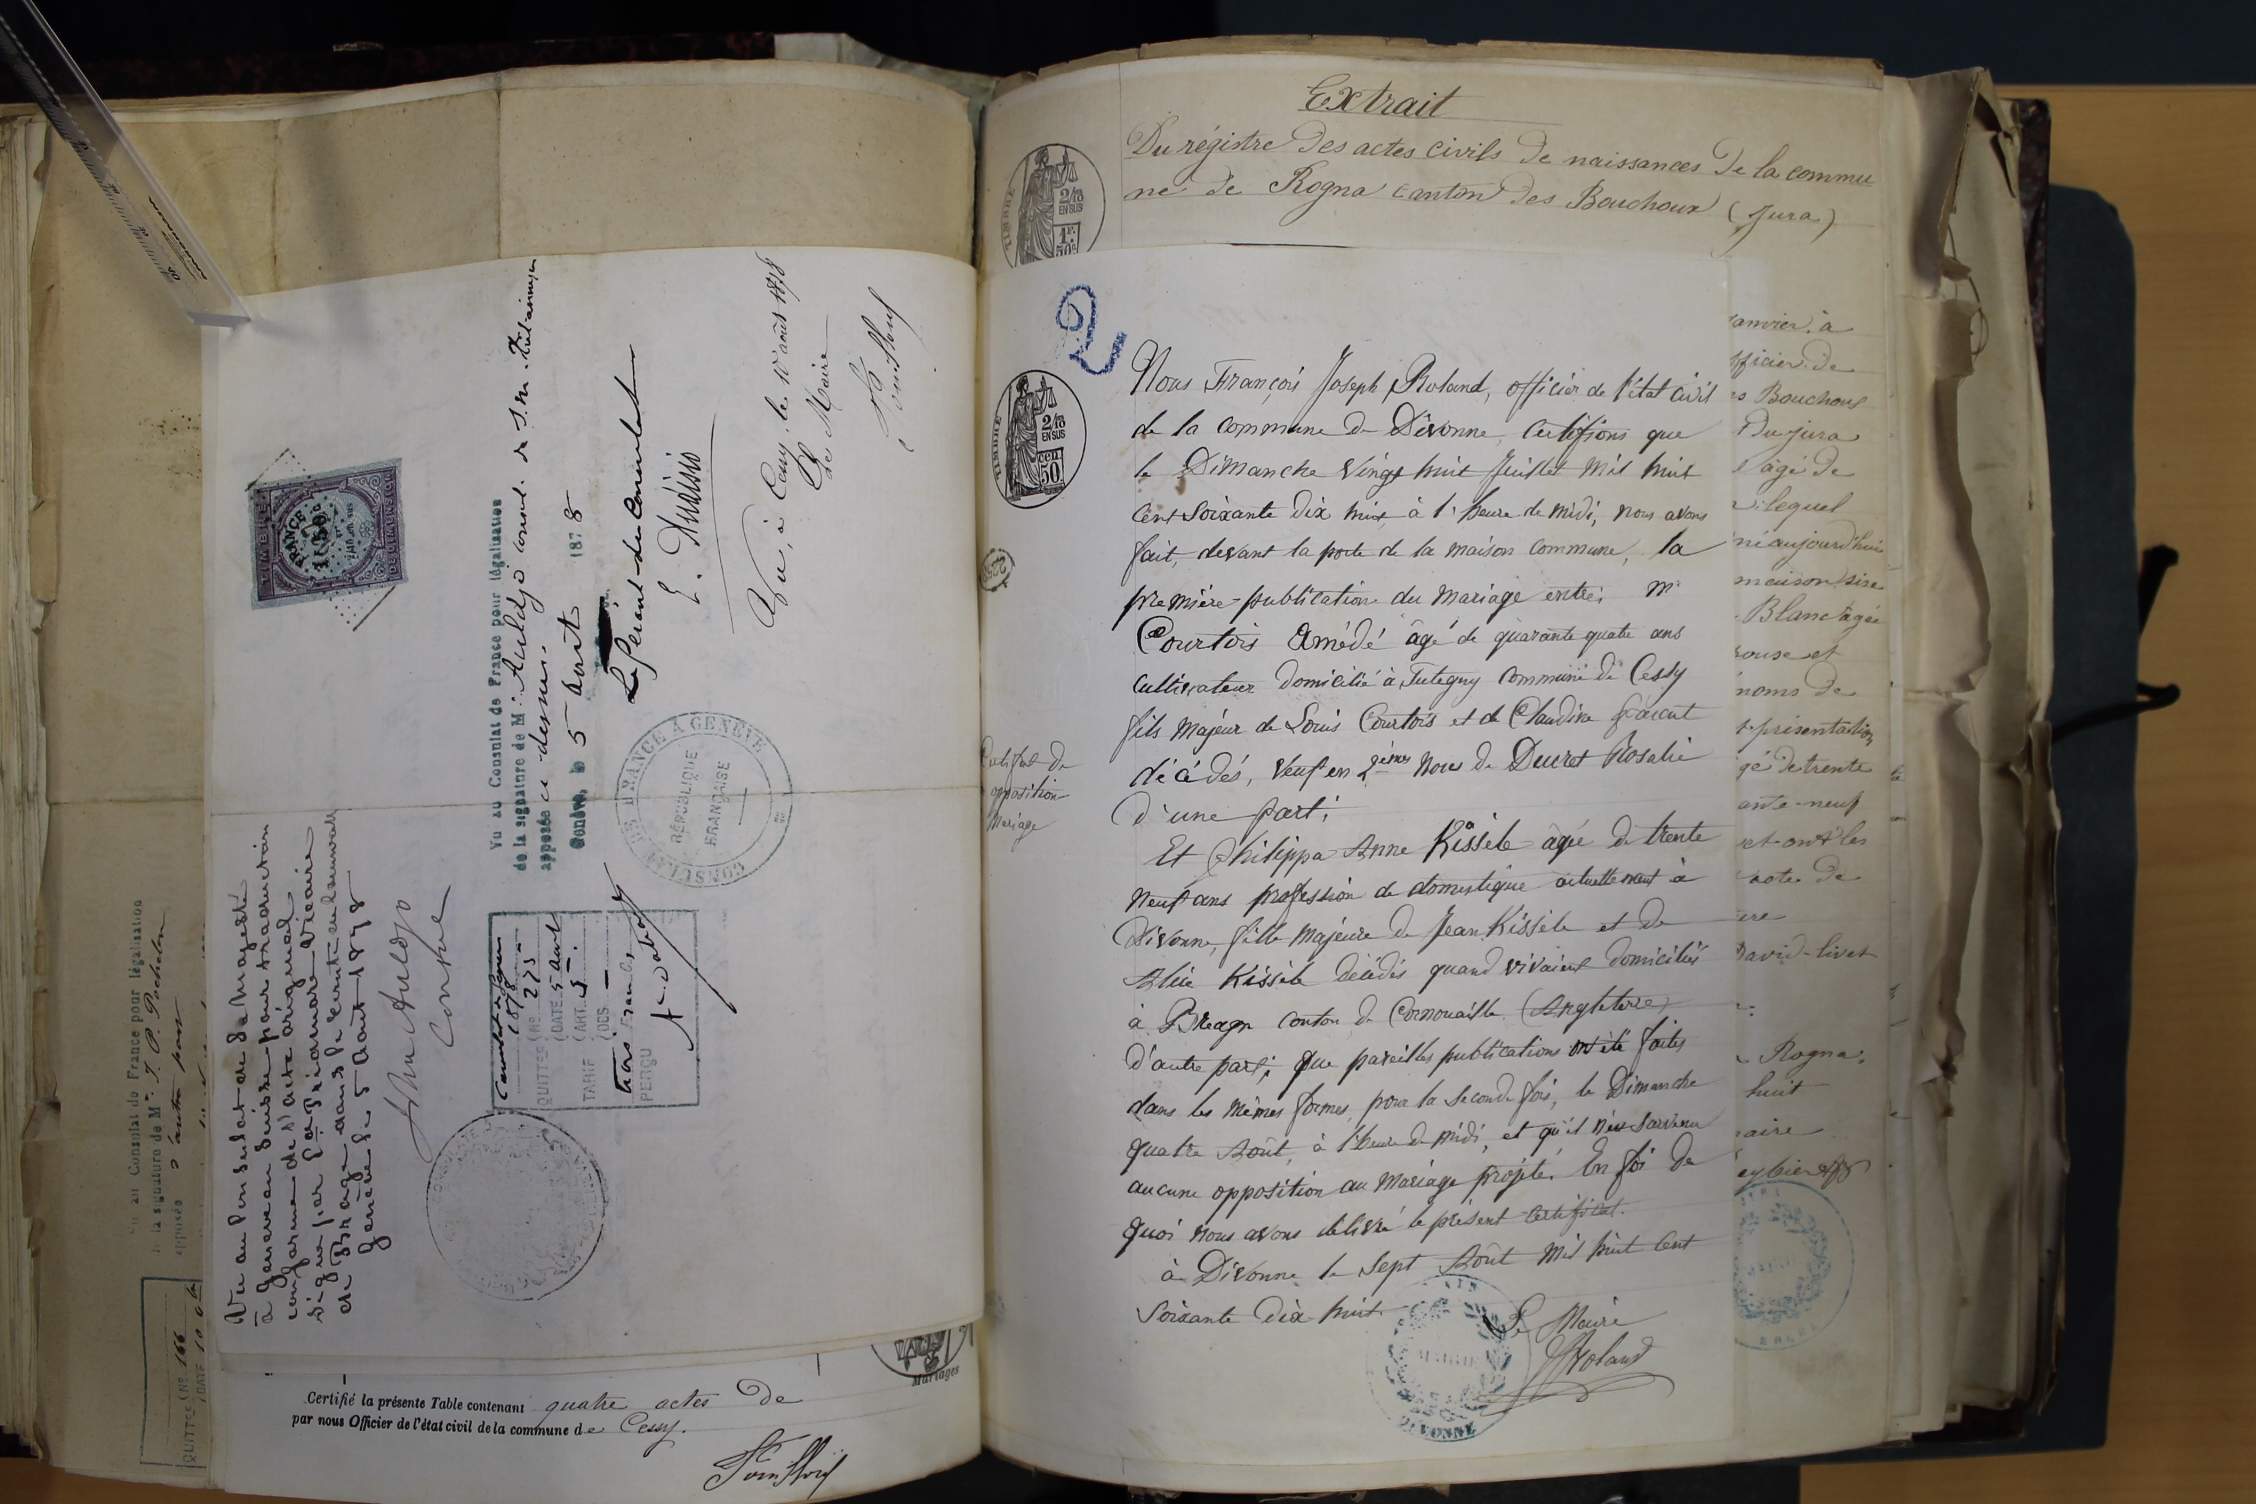 Vu au Consulat de France pour légalisation
de la signature de Mr. J. P. Pochelon
apposée d'autre part
QUITTCE No 166
DATE 10
Vu au Consulat de Sa Majesté
à Genève en Suisse pour traduction
conforme de l'acte original
signé par
de Breage dans le Comté de Cornwall
Genève le 5 Août 1878
John Auldjo
Consul
TIMBRE
FRANCE
Vu au Consulat de France pour légalisation
de la signature de M. Auldjo consul de S. M. Britannique
apposée ci dessus.
Genève, le 5 Août 1878
Le Gérant du Consulat
Vu, à Cessy, le 10 août 1878
Le Maire
CONSULAT DE FRANCE A GENÈVE
RÉPUBLIQUE
FRANÇAISE
1878
QUITTCE No 275
DATE 5 août
TARIF ART. 5
PERÇU
Certifié la présente Table contenant quatre actes de
par nous Officier de l'état civil de la commune de Cessy.
Mariages
Extrait
Du régistre des actes civils de naissances de la commu
ne de Rogna canton des Bouchoux (Jura)
TIMBRE
2/10
EN SUS
1F.
50c
2
TIMBRE
2/10
EN SUS
cen
50
Nous François Joseph Roland, officier de l'état civil
de la commune de Divonne, Certifions que
le Dimanche Vingt huit Juillet mil huit
Cent Soixante dix huit, à l'heure de midi, nous avons
fait, devant la porte de la maison commune, la
première publication du mariage entre; Mr
Courtois Amédé âgé de quarante quatre ans
Cultivateur domicilié à Tutegny commune de Cessy
fils majeur de Louis Courtois et de Claudine
décédés, Veuf en 2èmes Noces de Ducret Rosalie
d'une part;
Et Philippa Anne Kissele âgée de trente
Neuf ans profession de domestique actuellement à
Divonne, fille majeure de Jean Kissele et de
Alice Kissele décédés quand vivaient domiciliés
à Breage conton de Cornouaille (Angleterre)
d'autre part; que pareilles publications ont été faites
dans les mêmes formes, pour la seconde fois, le Dimanche
quatre Août, à l'heure de midi, et qu'il n'est survenu
aucune opposition au mariage projeté. En foi de
quoi nous avons délivré le présent certificat.
à Divonne le Sept Août mil huit Cent
Soixante Dix huit.
Le Maire
Roland
DIVONNE
Certificat de
opposition
Mariage
janvier à
officier de
Bouchoux
Du Jura
âgé de
lequel
né aujourd'hui
maison sise
Blanc âgée
épouse et
noms de
présentation
gé de trente
ante-neuf
et ont les
note de
David-livet
Rogna;
huit
maire